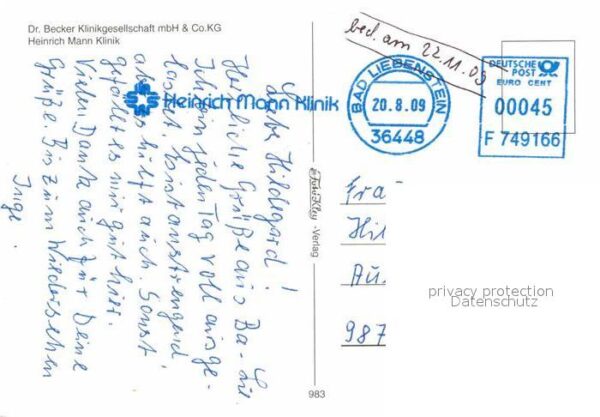 Dr. Becker Klinikgesellschaft mbH & Co.KG
Heinrich Mann Klinik
Heinrich Mann Klinik
BAD LIEBENSTEIN
20.8.09
36448
DEUTSCHE
POST
EURO CENT
00045
F 749166
am 22.11.09
Liebe Hildegard!
Herzliche Grüße aus Ba-Lie.
Ich bin jeden Tag voll ausge-
lastet. Ist anstrengend
aber es hilft auch. Sonst
gefällt es mir gut hier.
Vielen Dank auch für Deine
Grüße. Bis zum Wiedersehen
Inge.
-Verlag
983
Fra
Hil
Au.
987
privacy protection
Datenschutz